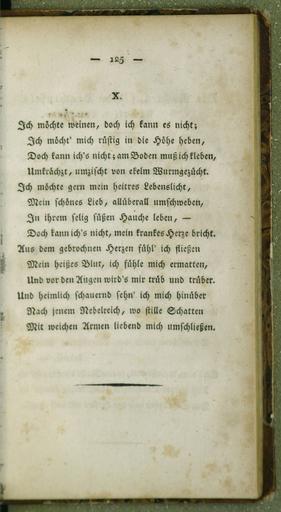 — 125 —
X.
Ich möchte weinen, doch ich kann es nicht;
Ich möcht' mich rüstig in die Höhe heben,
Doch kann ich's nicht; am Boden muß ich kleben,
Umkrächzt, umzischt von eklem Wurmgezücht.
Ich möchte gern mein heitres Lebenslicht,
Mein schönes Lieb, allüberall umschweben,
In ihrem selig süßen Hauche leben, —
Doch kann ich's nicht, mein krankes Herze bricht.
Aus dem gebrochnen Herzen fühl' ich fließen
Mein heißes Blut, ich fühle mich ermatten,
Und vor den Augen wird's mir trüb und trüber.
Und heimlich schauernd sehn' ich mich hinüber
Nach jenem Nebelreich, wo stille Schatten
Mit weichen Armen liebend mich umschließen.